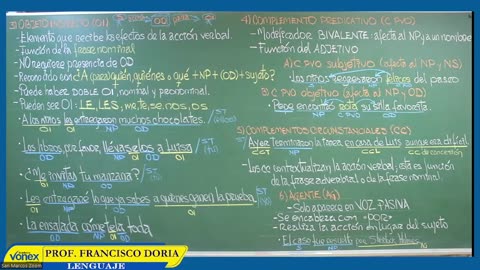 3) OBJETO INDIRECTO (OI)
- Elemento que recibe los efectos de la acción verbal.
- Función de la frase nominal
- NO requiere presencia de OD
- Puede haber DOBLE OI, nominal y pronominal.
- Pueden ser OI: LE, LES, me, te, se, nos, os
- A los niños les entregaron muchos chocolates.
OI OI NP OD
- Los libros, por favor, llévaselos a Luisa
OD NP OI OD OI
- ¿Me invitas tu manzana?
OI NP OD
- Les entregaré lo que ya sabes a quienes ganen la prueba.
OI NP OD OI
- La ensalada cómetela toda
4) COMPLEMENTO PREDICATIVO (C PVO)
- Modificador BIVALENTE: afecta al NP y a un nombre
- Función del ADJETIVO
A) C PVO subjetivo (afecta al NP y NS)
- Los niños regresaron felices del paseo
B) C PVO objetivo (afecta al NP y OD)
- Pepe encontró rota su silla favorita.
5) COMPLEMENTOS CIRCUNSTANCIALES (CC)
- Ayer terminaron la tarea en casa de Luis aunque era difícil
CCT NP OD CCL CC de concesión
- Los CC contextualizan la acción verbal; esta es función
de la frase adverbial o de la frase nominal.
6) AGENTE (Ag)
- Solo aparece en VOZ PASIVA
- Se encabeza con "POR"
- Realiza la acción en lugar del sujeto
- El caso fue resuelto por Sherlock Holmes
S NP Ag
VONEX
San Marcos Zoom
PROF. FRANCISCO DORIA
LENGUAJE